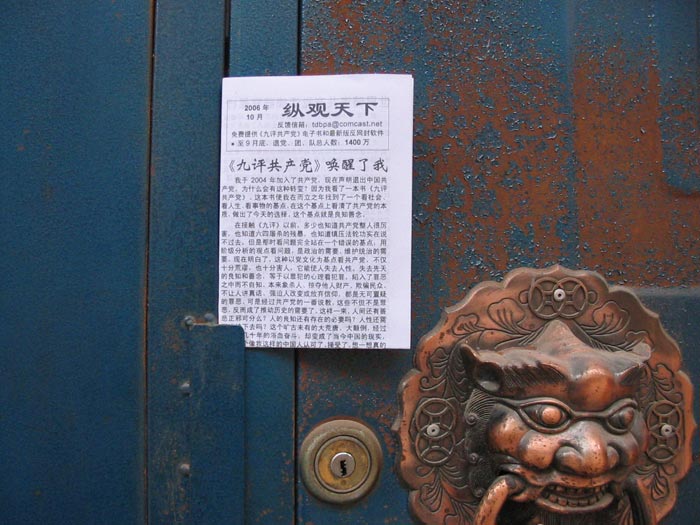 2006 年
10 月
纵观天下
反馈信箱：tdbpa@comcast.net
免费提供《九评共产党》电子书和最新版反网封软件
● 至 9 月底，退党、团、队总人数：1400 万
《九评共产党》唤醒了我
我于 2004 年加入了共产党，现在声明退出中国共
产党。为什么会有这种转变？因为我看了一本书《九评
共产党》，这本书使我在而立之年找到了一个看社会、
看人生、看事物的基点，在这个基点上看清了共产党的本
质，做出了今天的选择，这个基点就是良知善念。
在接触《九评》以前，多少也知道共产党整人很厉
害，也知道六四屠杀的残暴，也知道镇压法轮功实在说
不过去，但是那时看问题完全站在一个错误的基点，用
阶级分析的观点看问题，是政治的需要，维护统治的需
要。现在明白了，这种以党文化为基点看共产党，不仅
十分荒谬，也十分害人。它能使人失去人性，失去先天
的良知和善念，等于以罪犯的心理看犯罪，陷入了罪恶
之中而不自知。本来象杀人、掠夺他人财产、欺骗民众、
不让人讲真话、强迫人改变或放弃信仰，都是无可置疑
的罪恶，可是经过共产党的一番说教，这些不但不是罪
恶，反而成了推动历史的需要了。这样一来，人间还有善
恶正邪可分么？人的良知还有存在的必要吗？人性还需
下去吗？这个旷古未有的大荒唐、大颠倒，经过
几十年的浴血奋斗，却变成了当今中国的现实，
象我这样的中国人认可了、接受了。想一想真的